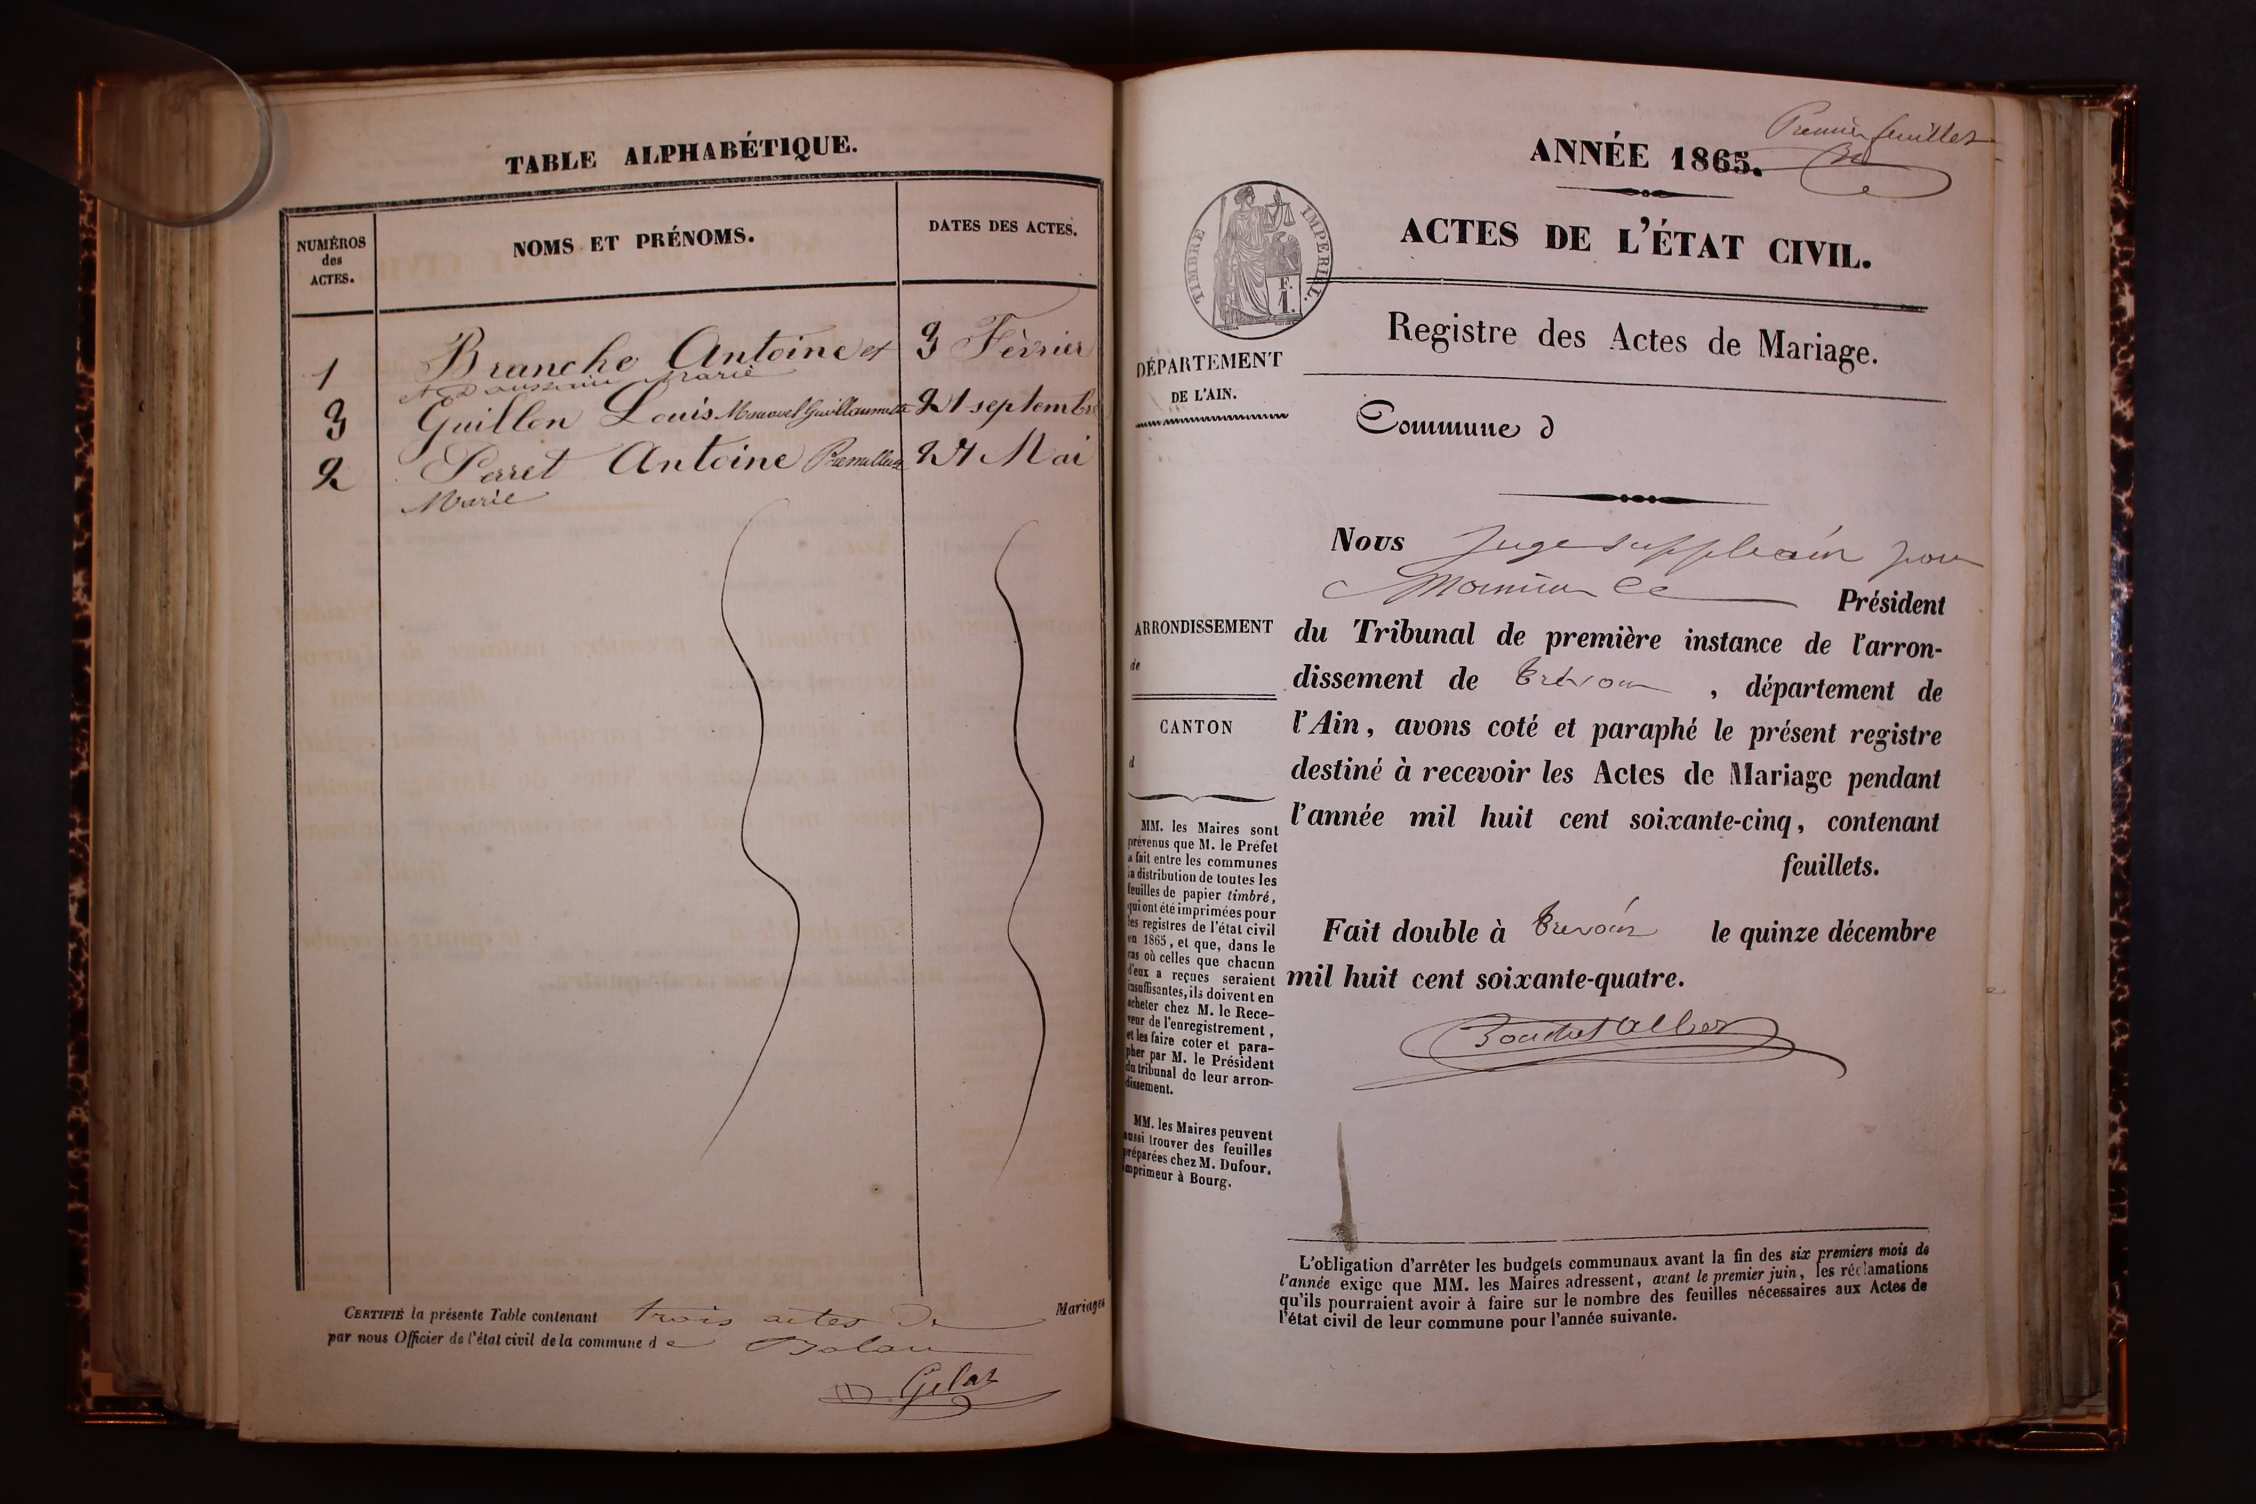 TABLE ALPHABÉTIQUE.
NUMÉROS
des
ACTES.
NOMS ET PRÉNOMS.
DATES DES ACTES.
1 Branche Antoine et 3 Février
et Marie
3 Guillon Louis Guillaumette 21 septembre
2 Perret Antoine 27 Mai
Marie
CERTIFIÉ la présente Table contenant trois actes de Mariages
par nous Officier de l'état civil de la commune de Balan
Gelas
Premier feuillet
ANNÉE 1865.
TIMBRE IMPERIAL.
F.
1.
ACTES DE L'ÉTAT CIVIL.
Registre des Actes de Mariage.
DÉPARTEMENT
DE L'AIN.
Commune d
ARRONDISSEMENT
de
CANTON
d
MM. les Maires sont
prévenus que M. le Préfet
a fait entre les communes
la distribution de toutes les
feuilles de papier timbré,
qui ont été imprimées pour
les registres de l'état civil
en 1865, et que, dans le
cas où celles que chacun
d'eux a reçues seraient
insuffisantes, ils doivent en
acheter chez M. le Rece-
veur de l'enregistrement,
et les faire coter et para-
pher par M. le Président
du tribunal de leur arron-
dissement.
MM. les Maires peuvent
aussi trouver des feuilles
préparées chez M. Dufour,
imprimeur à Bourg.
Nous Juge suppléant pour
Monsieur le Président
du Tribunal de première instance de l'arron-
dissement de Trévoux, département de
l'Ain, avons coté et paraphé le présent registre
destiné à recevoir les Actes de Mariage pendant
l'année mil huit cent soixante-cinq, contenant
feuillets.
Fait double à Trevoux le quinze décembre
mil huit cent soixante-quatre.
L'obligation d'arrêter les budgets communaux avant la fin des six premiers mois de
l'année exige que MM. les Maires adressent, avant le premier juin, les réclamations
qu'ils pourraient avoir à faire sur le nombre des feuilles nécessaires aux Actes de
l'état civil de leur commune pour l'année suivante.